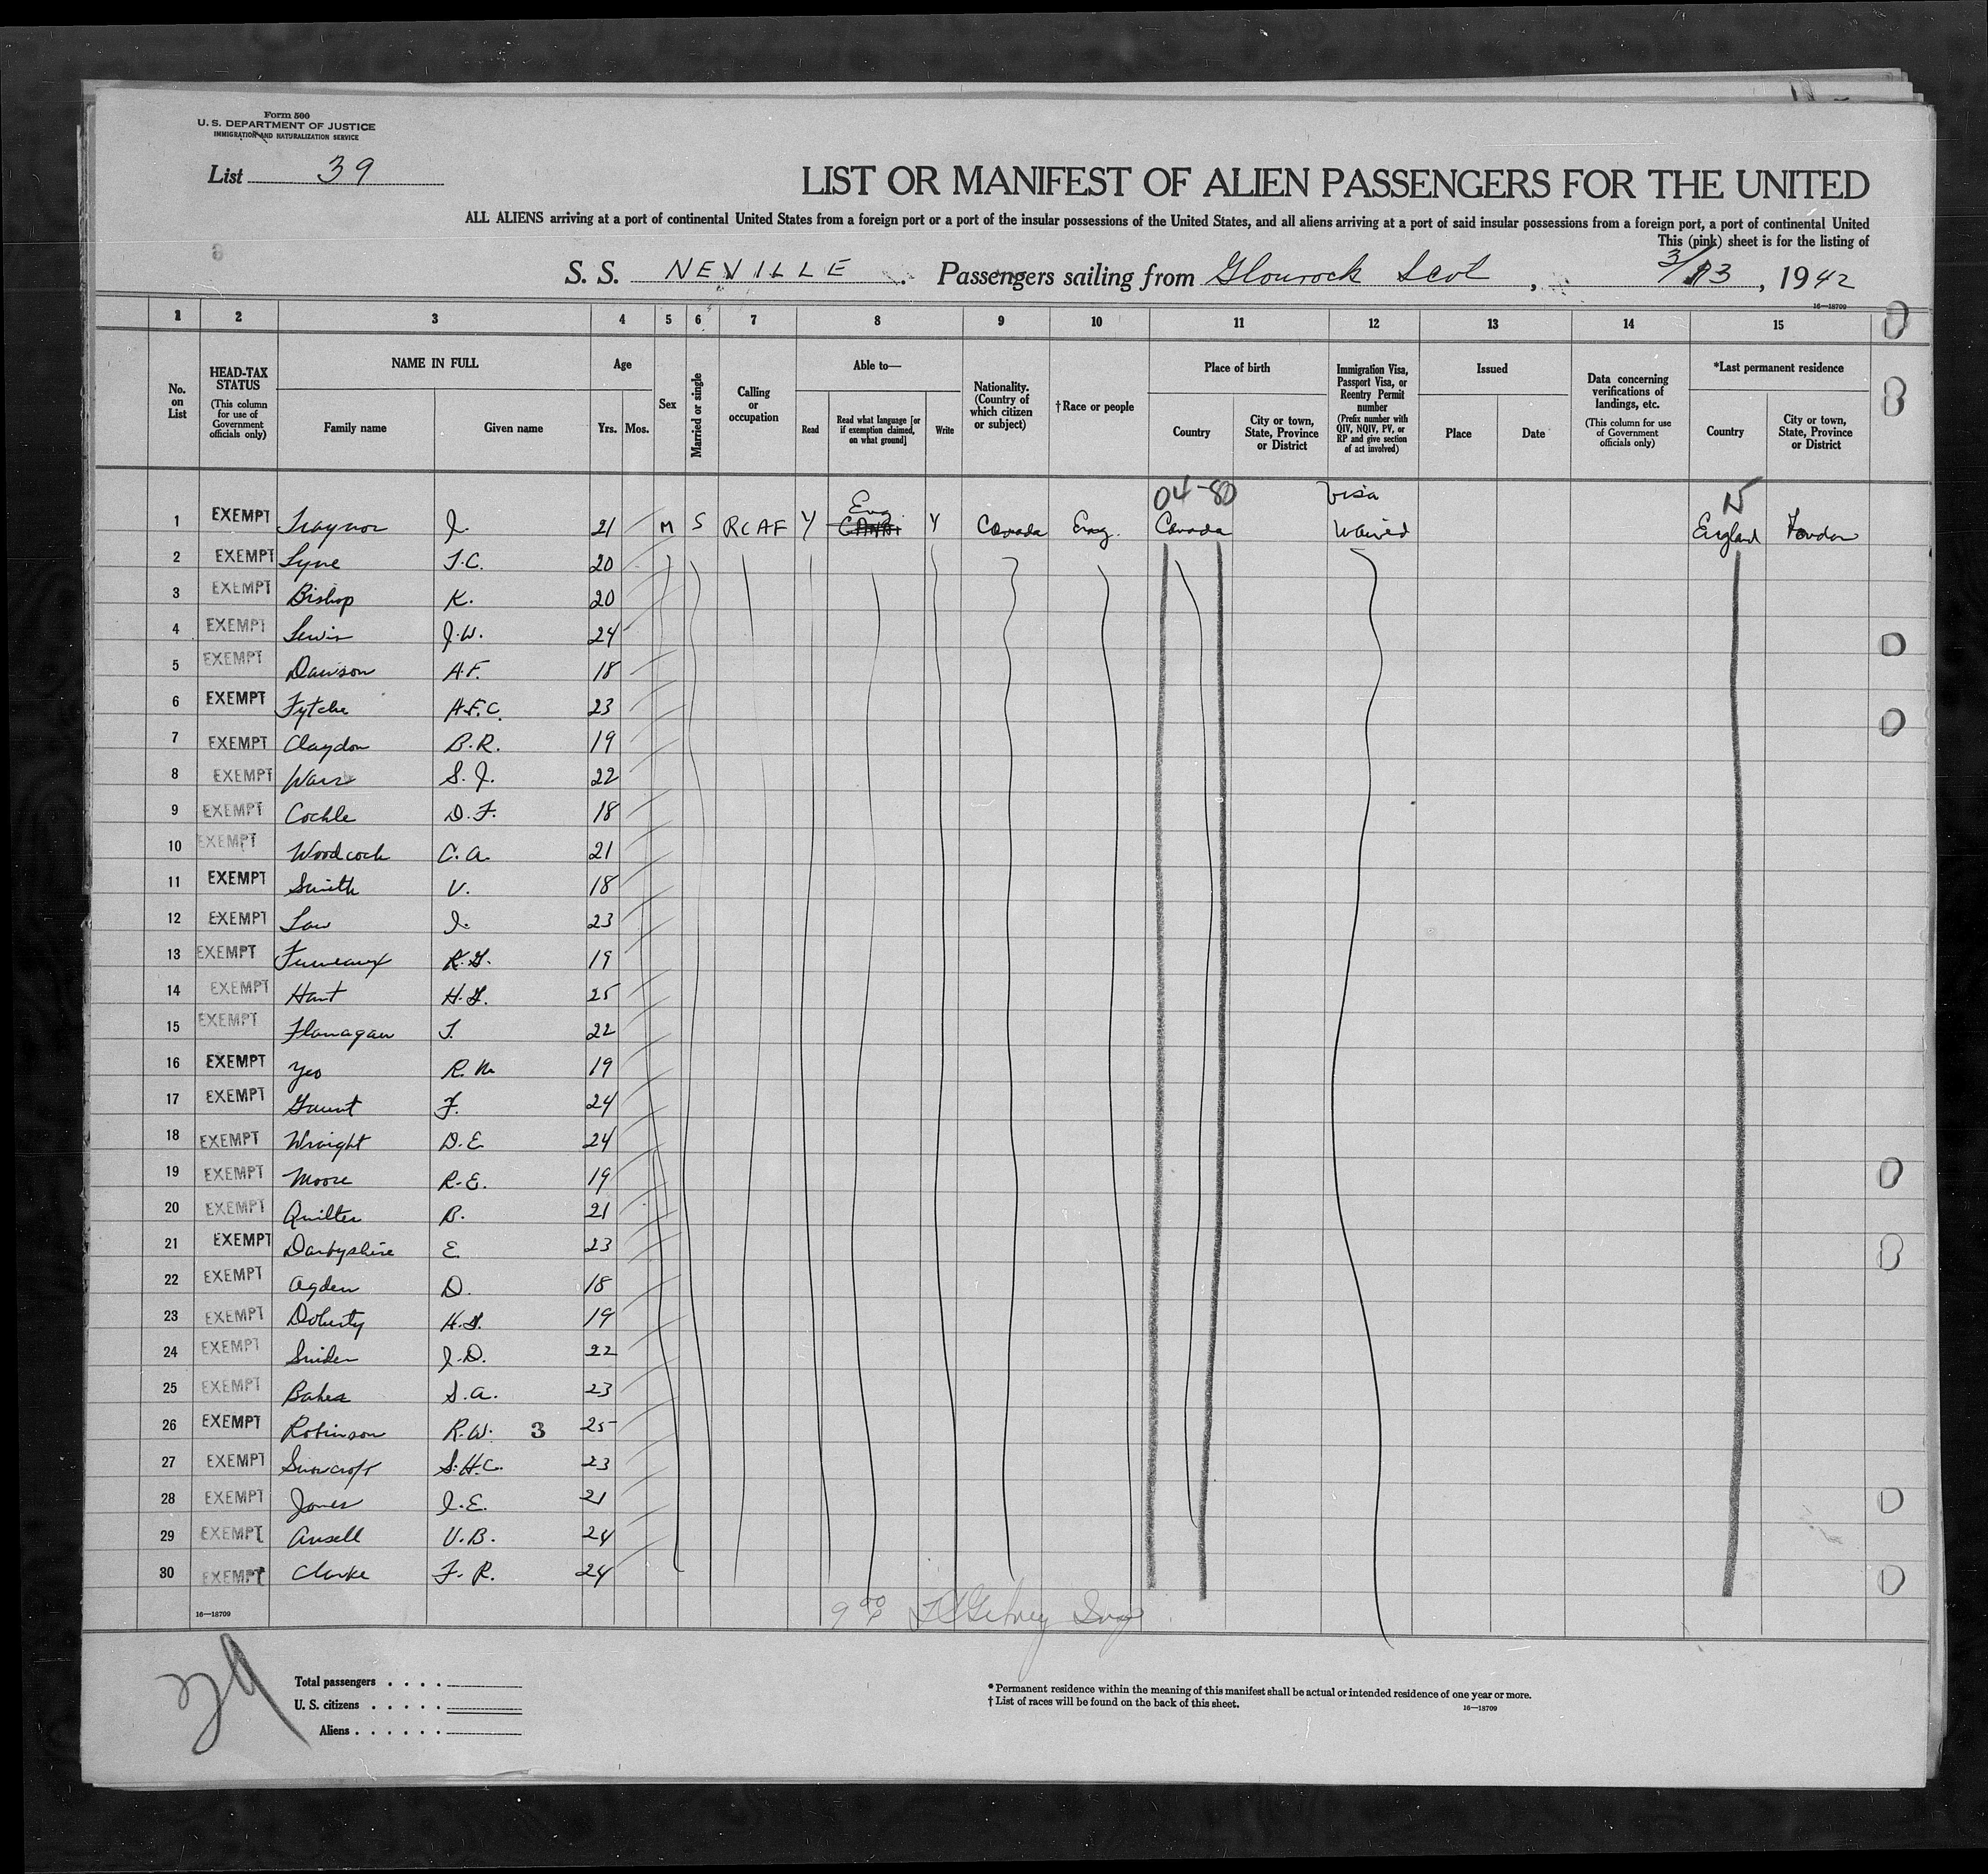 Form 500
U. S. DEPARTMENT OF JUSTICE
IMMIGRATION AND NATURALIZATION SERVICE
List 39
LIST OR MANIFEST OF ALIEN PASSENGERS FOR THE UNITED
ALL ALIENS arriving at a port of continental United States from a foreign port or a port of the insular possessions of the United States, and all aliens arriving at a port of said insular possessions from a foreign port, a port of continental United
This (pink) sheet is for the listing of
S. S. NEVILLE. Passengers sailing from Glourock Scot, 3/13, 1942
16—18709
1 2 3 4 5 6 7 8 9 10 11 12 13 14 15
No. on List
HEAD-TAX STATUS (This column for use of Government officials only)
NAME IN FULL
Family name
Given name
Age
Yrs. Mos.
Sex
Married or single
Calling or occupation
Able to—
Read
Read what language [or if exemption claimed, on what ground]
Write
Nationality. (Country of which citizen or subject)
†Race or people
Place of birth
Country
City or town, State, Province or District
Immigration Visa, Passport Visa, or Reentry Permit number (Prefix number with QIV, NQIV, PV, or RP and give section of act involved)
Issued
Place
Date
Data concerning verifications of landings, etc. (This column for use of Government officials only)
*Last permanent residence
Country
City or town, State, Province or District
04-80 Visa
1 EXEMPT Traynor J. 21 M S RCAF Y Eng Y Canada Eng. Canada Waived England London
2 EXEMPT Lyne T.C. 20
3 EXEMPT Bishop K. 20
4 EXEMPT Lewis J.W. 24
5 EXEMPT Dawson A.F. 18
6 EXEMPT Fytche A.F.C. 23
7 EXEMPT Claydon B.R. 19
8 EXEMPT S.J. 22
9 EXEMPT Cockle D.F. 18
10 EXEMPT Woodcock C.A. 21
11 EXEMPT Smith V. 18
12 EXEMPT Law J. 23
13 EXEMPT Furneaux K.G. 19
14 EXEMPT Hart H.G. 25
15 EXEMPT Flanagan T. 22
16 EXEMPT Yeo R.M. 19
17 EXEMPT Gaunt F. 24
18 EXEMPT Wraight D.E 24
19 EXEMPT Moore R.E. 19
20 EXEMPT Quilter B. 21
21 EXEMPT Darbyshire E. 23
22 EXEMPT Ogden D. 18
23 EXEMPT Doherty H.G. 19
24 EXEMPT Snider J.D. 22
25 EXEMPT Baker S.A. 23
26 EXEMPT Robinson R.W. 3 25
27 EXEMPT Snowcroft S.H.C. 23
28 EXEMPT Jones J.E. 21
29 EXEMPT Ansell V.B. 24
30 EXEMPT Clarke F.R. 24
16—18709
Total passengers
U. S. citizens
Aliens
* Permanent residence within the meaning of this manifest shall be actual or intended residence of one year or more.
† List of races will be found on the back of this sheet.
16—18709